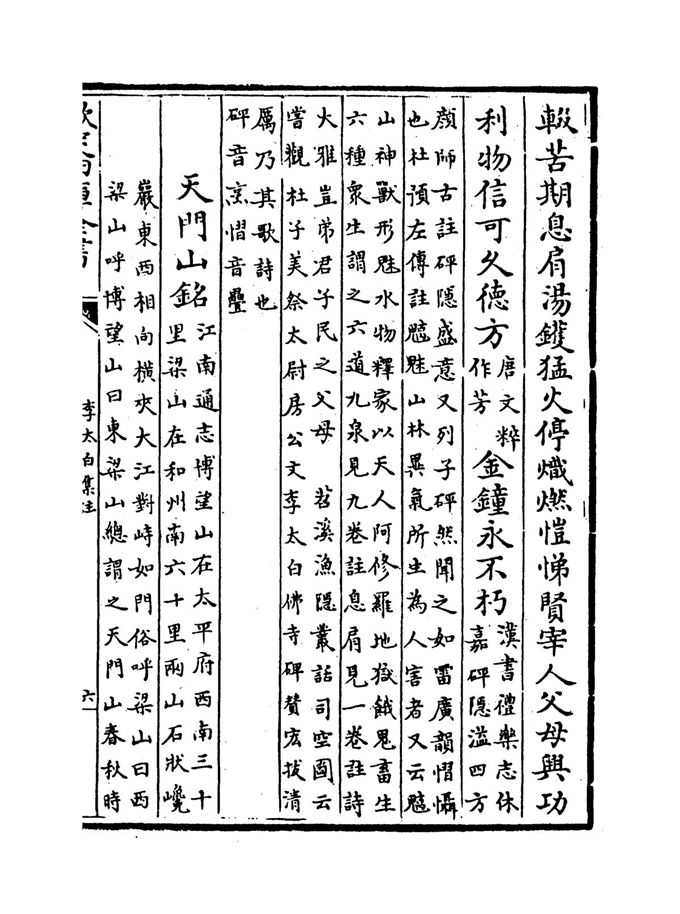 輟苦期息肩湯鑊猛火停熾燃愷悌賢宰人父母興功
利物信可久德方唐文粹作芳金鐘永不朽漢書禮樂志休嘉砰隱溢四方
顔師古註砰隱盛意又列子砰然聞之如雷廣韻慴懾
也杜預左傳註魑魅山林異氣所生為人害者又云魑
山神獸形魅水物釋家以天人阿修羅地獄餓鬼畜生
六種衆生謂之六道九泉見九卷註息肩見一卷註詩
大雅豈弟君子民之父母 苕溪漁隱叢話司空圖云
嘗觀杜子美祭太尉房公文李太白佛寺碑贊宏拔清
厲乃其歌詩也
砰音烹慴音疊
天門山銘江南通志博望山在太平府西南三十
里梁山在和州南六十里兩山石狀巉
巖東西相向橫夾大江對峙如門俗呼梁山曰西
梁山呼博望山曰東梁山總謂之天門山春秋時
欽定四庫全書
李太白集注
六